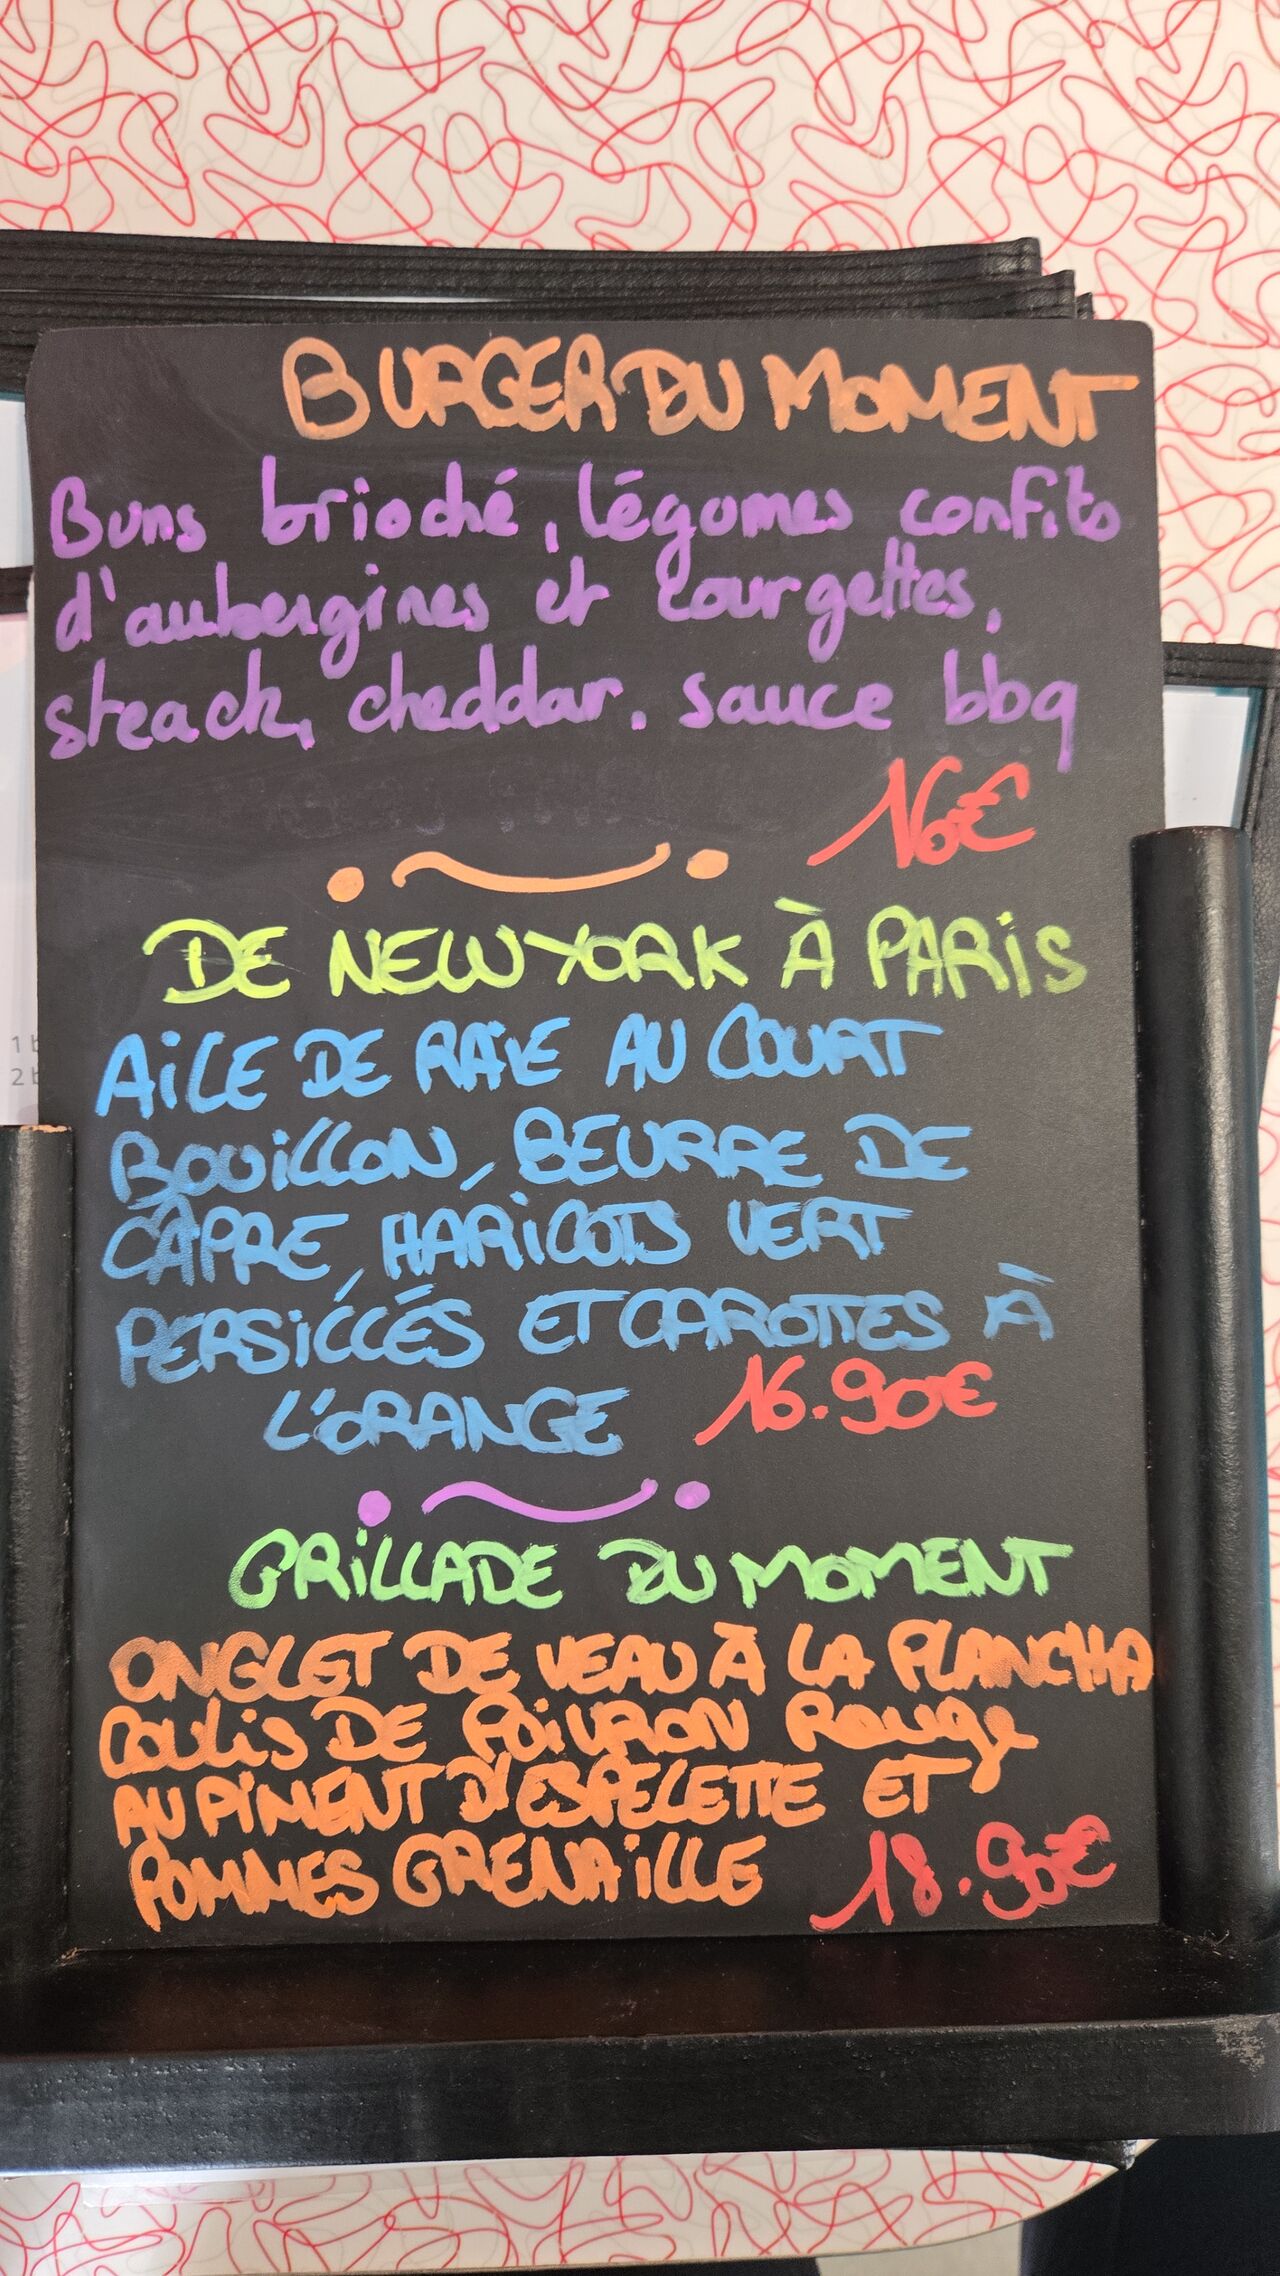 BURGER DU MOMENT
Buns brioché, légumes confits
d'aubergines et courgettes,
steack, cheddar, sauce bbq
16€
DE NEW YORK À PARIS
AILE DE RAIE AU COURT
BOUILLON, BEURRE DE
CAPRE, HARICOTS VERT
PERSILLÉS ET CAROTTES À
L'ORANGE 16.90€
GRILLADE DU MOMENT
ONGLET DE VEAU À LA PLANCHA
COULIS DE POIVRON ROUGE
AU PIMENT D'ESPELETTE ET
POMMES GRENAILLE 18.90€
1 b
2 b